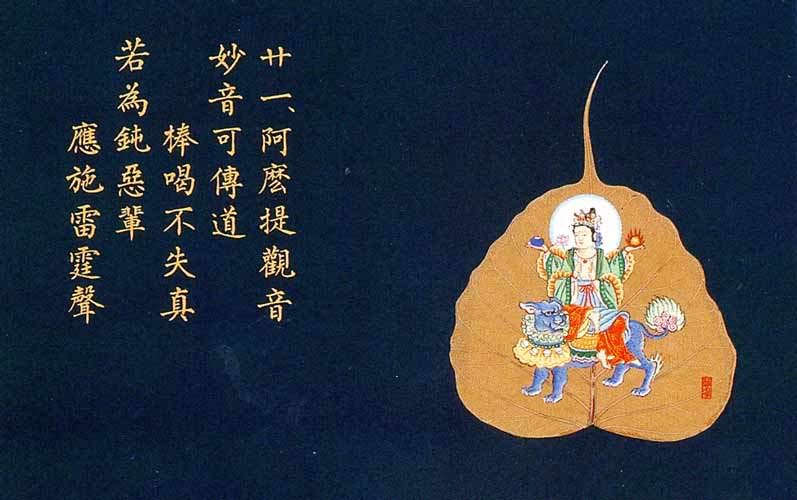 廿一、阿麽提觀音
妙音可傳道
棒喝不失真
若為鈍惡輩
應施雷霆聲